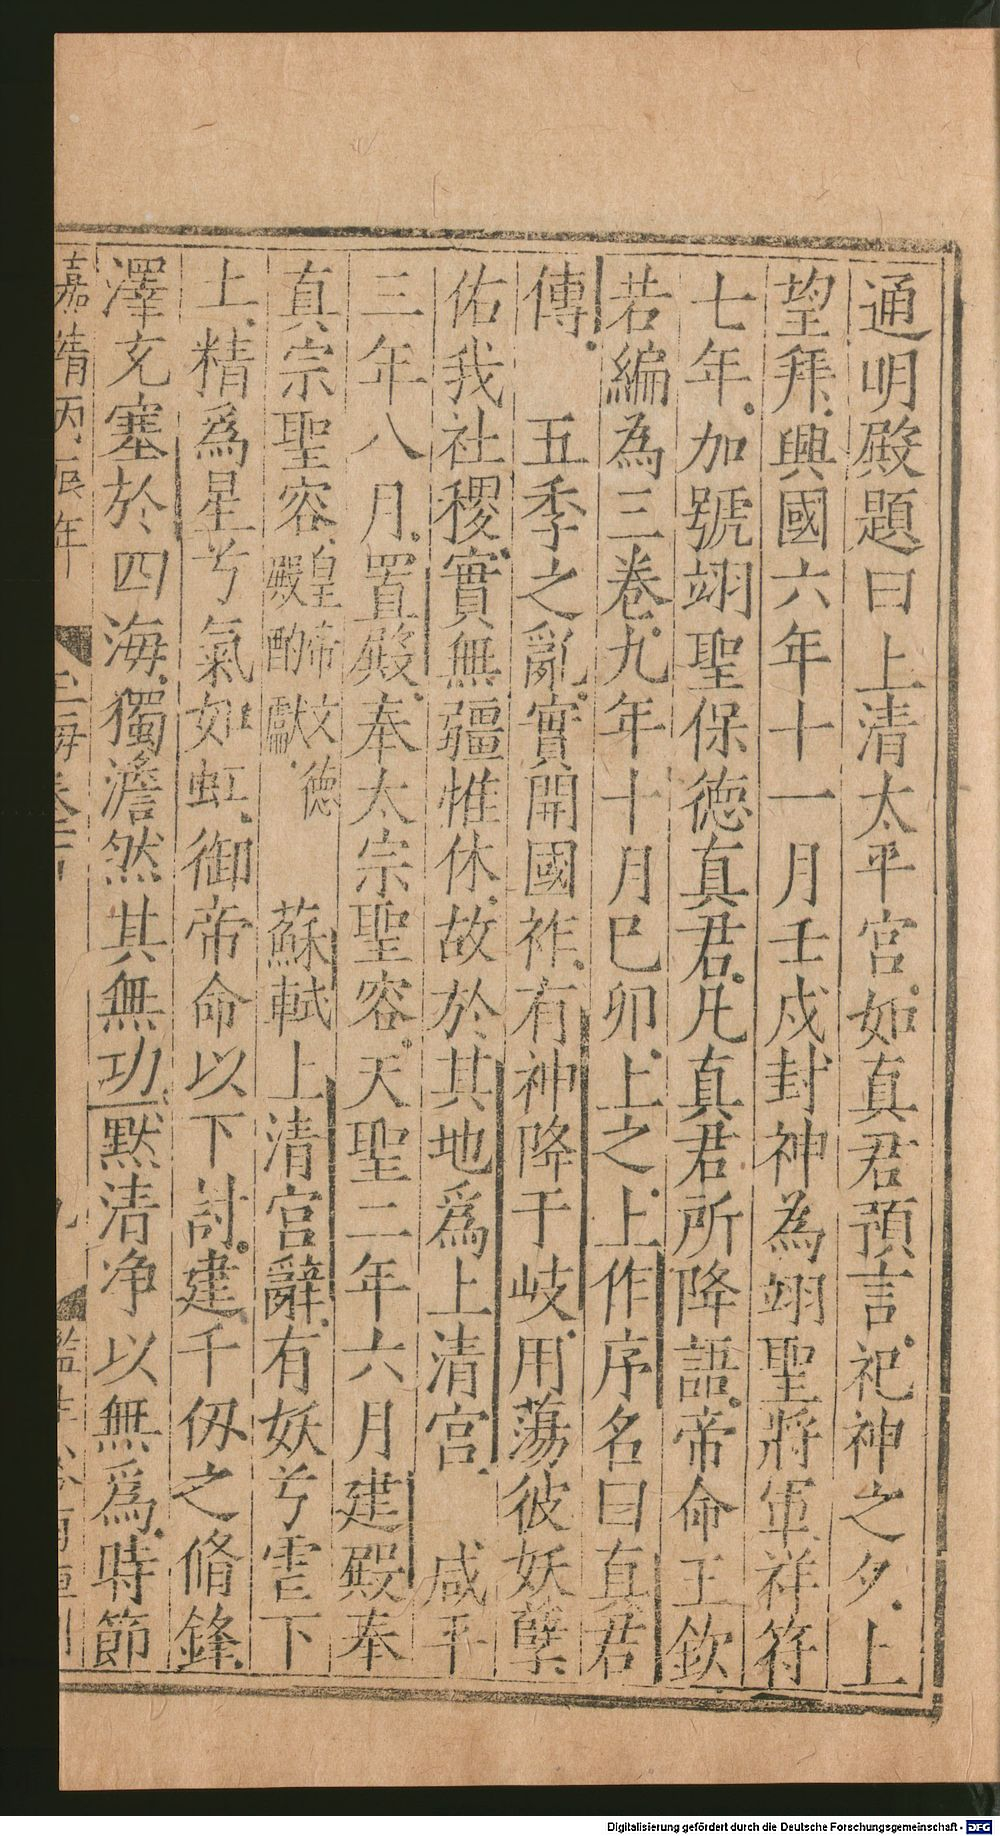 通明殿題曰上清太平宮如真君預言祀神之夕上
望拜興國六年十一月壬戌封神為翊聖將軍祥符
七年加號翊聖保德真君凡真君所降語帝命王欽
若編為三卷九年十月巳卯上之上作序名曰真君
傳　五季之亂實開國祚有神降于岐用蕩彼妖孽
佑我社稷實無疆惟休故於其地爲上清宮　咸平
三年八月置殿奉太宗聖容天聖二年六月建殿奉
真宗聖容皇帝文德殿酌獻　蘇軾上清宮辭有妖兮雲下
土精爲星兮氣如虹御帝命以下討建千仞之脩鋒
澤充塞於四海獨澹然其無功默清净以無爲時節
嘉靖丙辰年　玉海卷一百　九　監生
Digitalisierung gefördert durch die Deutsche Forschungsgemeinschaft - DFG